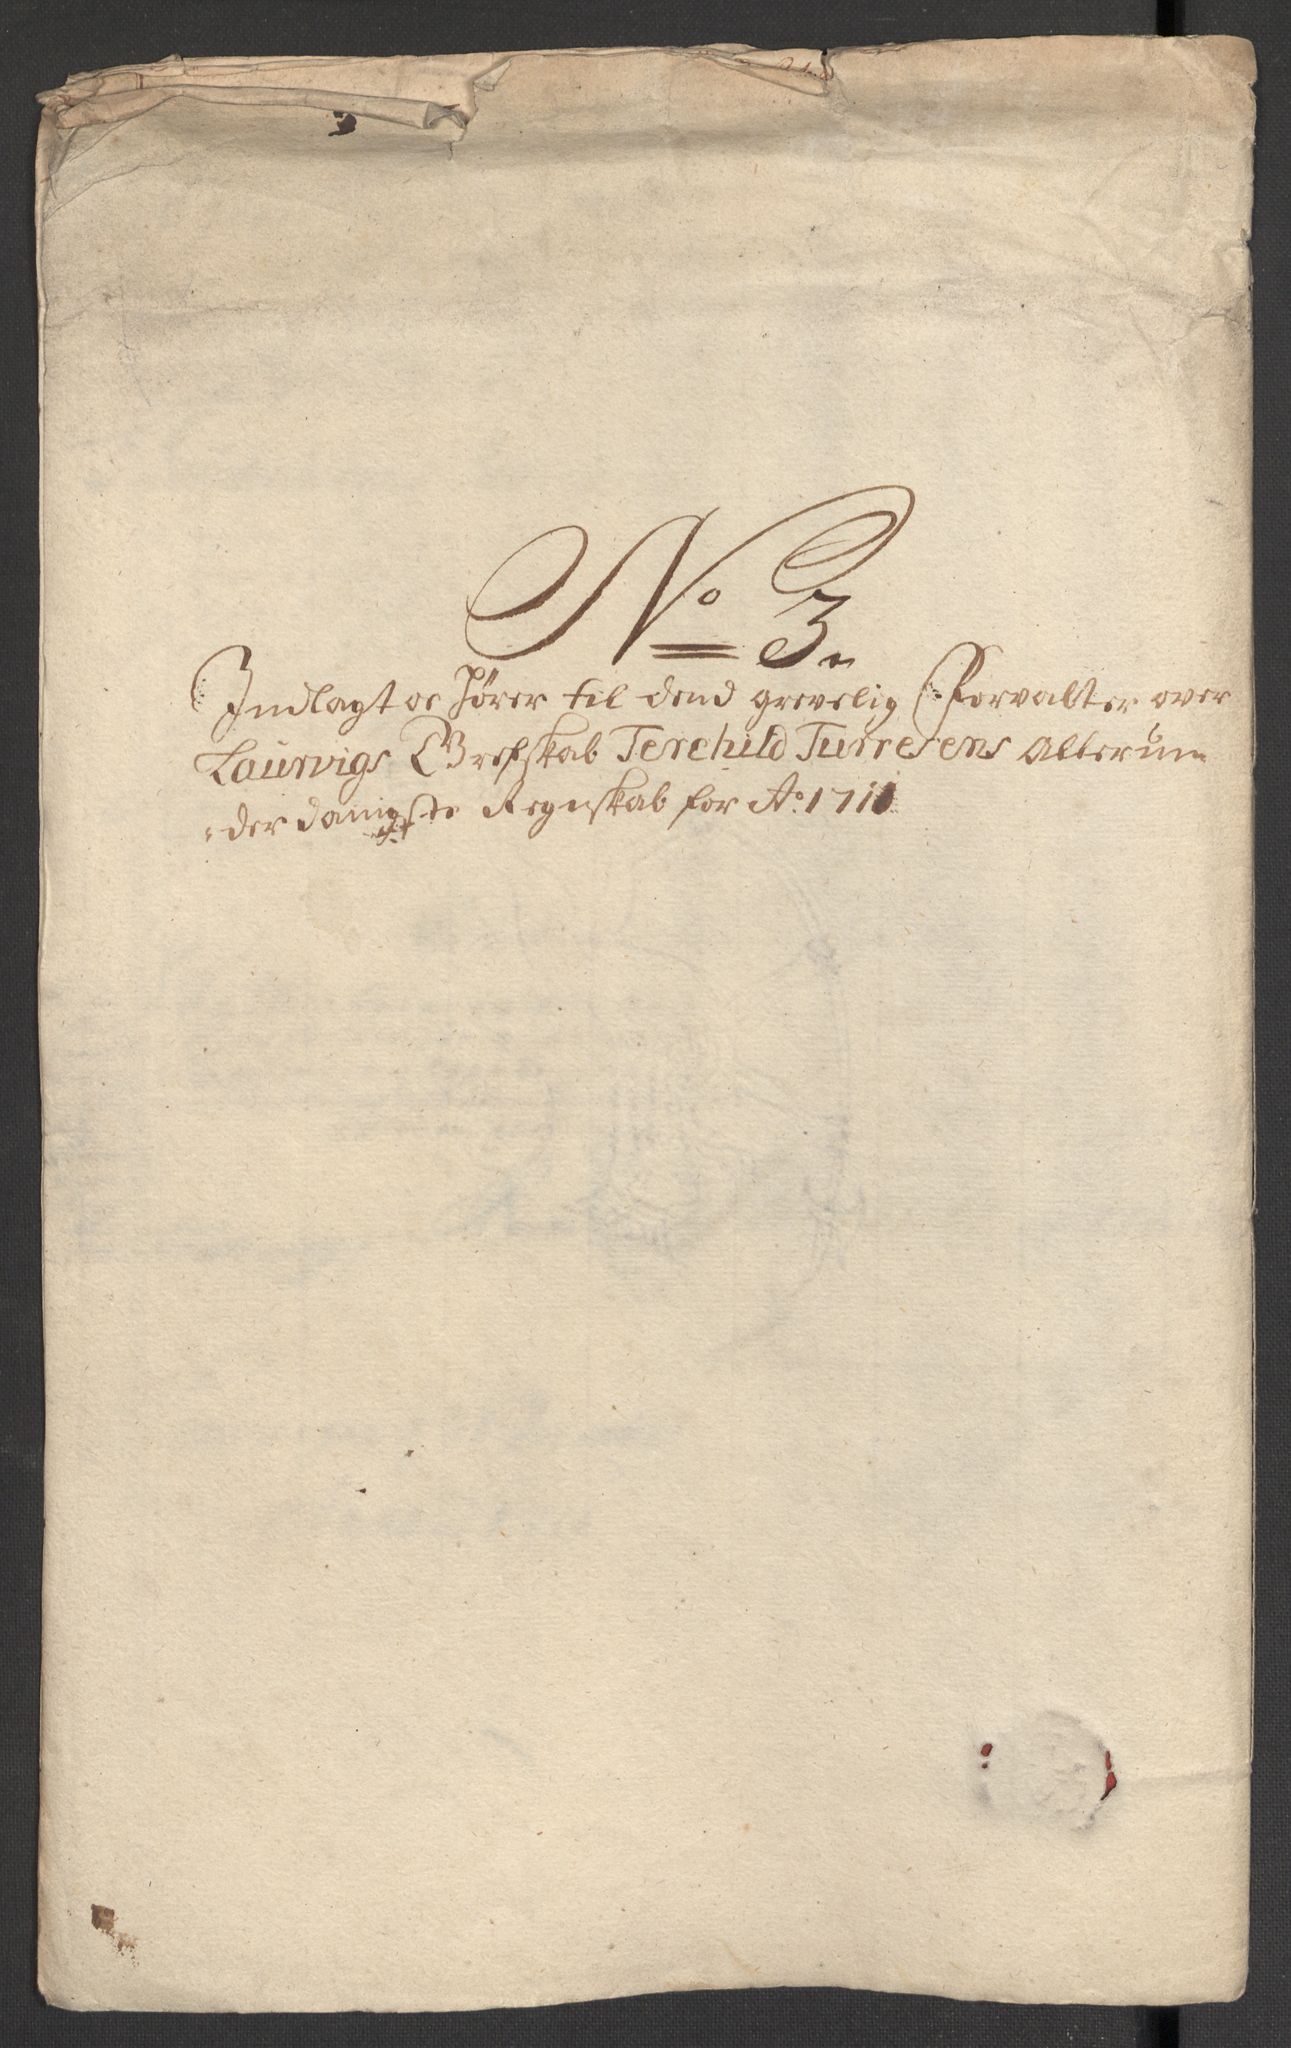 No 3.
Indlagt oc hører til dend grevelig Forvalter over
Laurvigs Grefskab Terchild Turresens Allerun-
der danigste Regnskab for Ao 1711